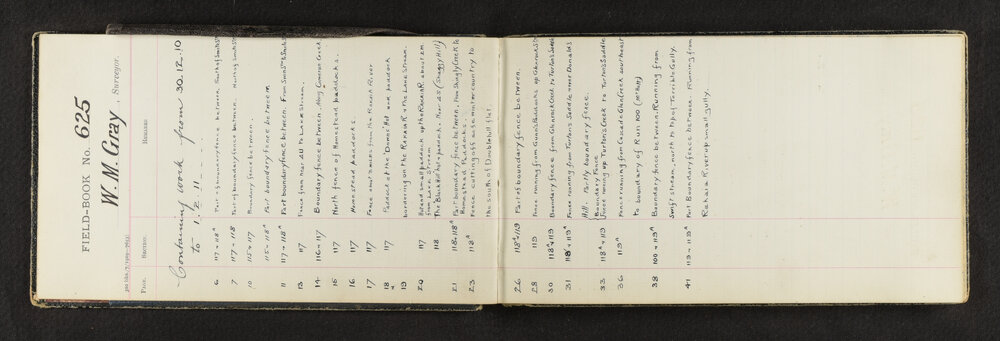 FIELD-BOOK No. 625
W. M. Gray, Surveyor.
PAGE. SECTION. REMARKS
Containing work from 30.12.10
to 1.2.11
6 117 & 118A Part of boundary fence between. South of South St
7 117 & 118 Part of boundary fence between. North of South St
10 115 & 117 Boundary fence between.
115 & 118A Part boundary fence between
11 117 & 118A Part boundary fence between. From
13 117 Fence from near to Lake Stream.
14 116 & 117 Boundary fence between. Along Cameron Creek
15 117 North fence of Homestead paddocks.
16 117 Homestead paddocks.
17 117 Fence running from the Rakaia River
18 117 Paddock at the "Dome" Hot and paddock
19 bordering on the Rakaia R & the Lake Stream.
20 117 Hut and small paddock up the Rakaia R. about 2 m.
from Lake Stream
118 The Black Hill hut & paddock. Near (Shaggy Hill)
21 118 & 118A Part boundary fence between. From Shingly Creek to
Homestead Paddocks.
23 118A Fence cutting off winter country to
the south of Double hill flat.
26 118A & 119 Part of boundary fence between.
28 119 Fence running from Paddocks up Glenrock St
30 118A & 119 Boundary fence from Glenrock Creek to Turton's Saddle
31 118A & 119A Fence running from Turton's Saddle over Donald's
Hill. Partly boundary fence.
33 118A & 119A Boundary Fence
Fence running over Turton's Creek to Turton's Saddle
36 119A Fence running from Creek southeast
to boundary of Run 100
38 100 & 119A Boundary fence between. Running from
Swift stream, north to top of Terrible Gully.
41 119 & 119A Part Boundary fence between. Running from
Rakaia River up small gully.